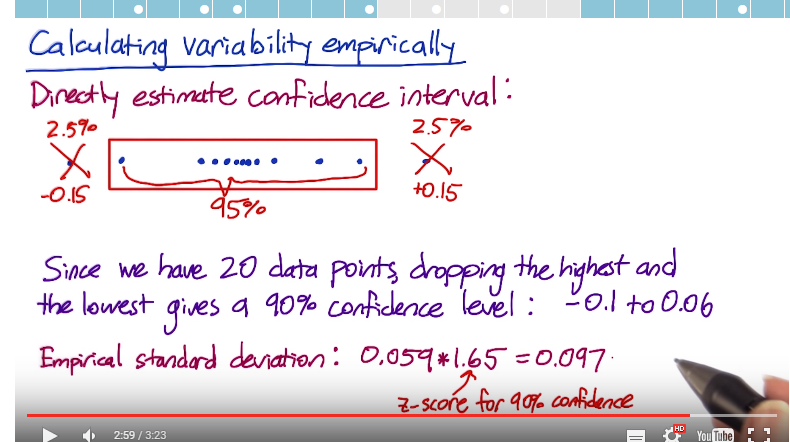 Calculating variability empirically
Directly estimate confidence interval:
2.5% 2.5%
-0.15 +0.15
95%
Since we have 20 data points, dropping the highest and
the lowest gives a 90% confidence level: -0.1 to 0.06
Empirical standard deviation: 0.059*1.65 = 0.097
z-score for 90% confidence
2:59 / 3:23 HD YouTube